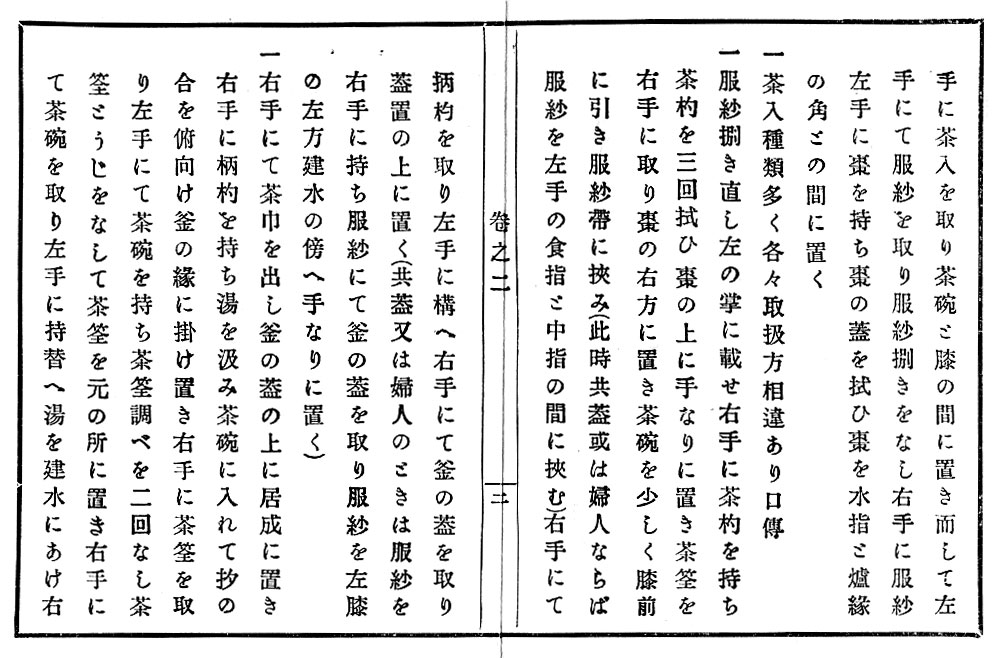 手に茶入を取り茶碗と膝の間に置き而して左
手にて服紗を取り服紗捌きをなし右手に服紗
左手に棗を持ち棗の蓋を拭ひ棗を水指と爐緣
の角との間に置く
一茶入種類多く各々取扱方相違あり口傳
一服紗捌き直し左の掌に載せ右手に茶杓を持ち
茶杓を三回拭ひ棗の上に手なりに置き茶筌を
右手に取り棗の右方に置き茶碗を少しく膝前
に引き服紗帶に挾み(此時共葢或は婦人ならば
服紗を左手の食指と中指の間に挾む)右手にて
卷之二
二
柄杓を取り左手に構へ右手にて釜の葢を取り
葢置の上に置く(共葢又は婦人のときは服紗を
右手に持ち服紗にて釜の葢を取り服紗を左膝
の左方建水の傍へ手なりに置く)
一右手にて茶巾を出し釜の葢の上に居成に置き
右手に柄杓を持ち湯を汲み茶碗に入れて抄の
合を俯向け釜の緣に掛け置き右手に茶筌を取
り左手にて茶碗を持ち茶筌調べを二回なし茶
筌とうじをなして茶筌を元の所に置き右手に
て茶碗を取り左手に持替へ湯を建水にあけ右